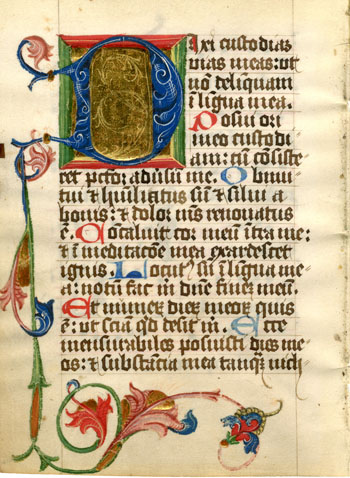 Dixi custodia᷒
vias meas: ut
nō delinquam
ī lingua mea.
Posui ori
meo custodi
am: cū cōsiste
ret pctor adūsū me. Obmu
tui & huīliatus sū & silui a
bonis: & dolor me᷒ renouatus
ē. Cōcaluit cor meū intra me:
& ī meditacōe mea exardescet
ignis. Locut᷒ sū ī lingua me
a: notū fac m̄ dn̄e finē meū.
Et numeꝝ dieꝝ meoꝝ quis
ē: ut sciā qd desit m̄. Ecce
mensurabiles posuisti dies me
os: & substācia mea tanqꝫ nich